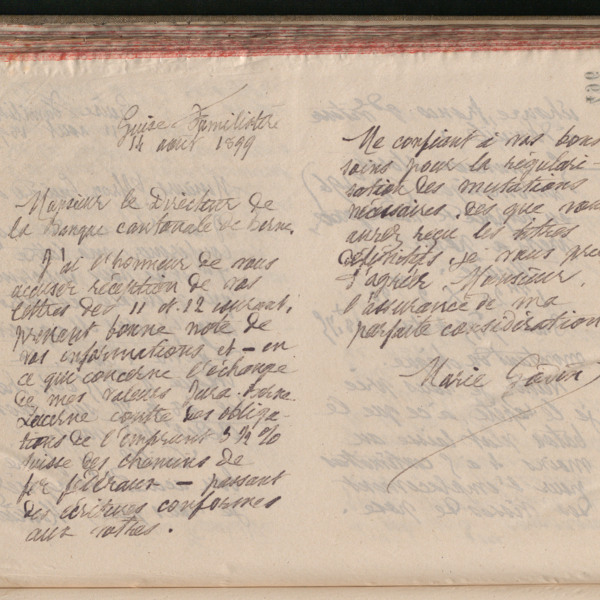 Guise Familistère
14 août 1899
Monsieur le Directeur de
la Banque cantonale de Berne,
J'ai l'honneur de vous
accuser réception de vos
lettres des 11 et 12 courant,
prenant bonne note de
vos informations et – en
ce qui concerne l'échange
de mes valeurs Jura-Berne
Lucerne contre des obliga-
tions de l'Emprunt 3 ½ %
suisse des chemins de
fer fédéraux – passant
des écritures conformes
aux vôtres.
Me confiant à vos bons
soins pour la régulari-
sation des mutations
nécessaires dès que vous
aurez reçu les titres
définitifs je vous prie
d'agréer, Monsieur,
l'assurance de ma
parfaite considération
Marie Godin
964